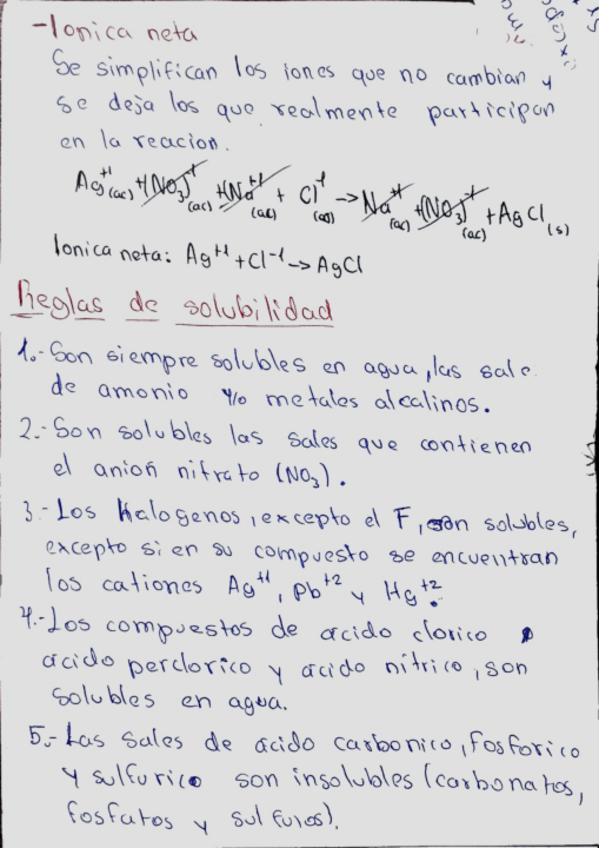 -Ionica neta
Se simplifican los iones que no cambian y
se deja los que realmente participan
en la reacion.
Ag⁺¹(ac) + (NO₃)⁻¹(ac) + Na⁺¹(ac) + Cl⁻¹(ac) → Na⁺¹(ac) + (NO₃)⁻¹(ac) + AgCl(s)
Ionica neta: Ag⁺¹ + Cl⁻¹ → AgCl
Reglas de solubilidad
1.- Son siempre solubles en agua, las sale
de amonio y/o metales alcalinos.
2.- Son solubles las sales que contienen
el anion nitrato (NO₃).
3.- Los Halogenos, excepto el F, son solubles,
excepto si en su compuesto se encuentran
los cationes Ag⁺¹, Pb⁺² y Hg⁺².
4.- Los compuestos de acido clorico
acido perclorico y acido nitrico, son
solubles en agua.
5.- Las sales de acido carbonico, fosforico
y sulfurico son insolubles (carbonatos,
fosfatos y sulfuros).